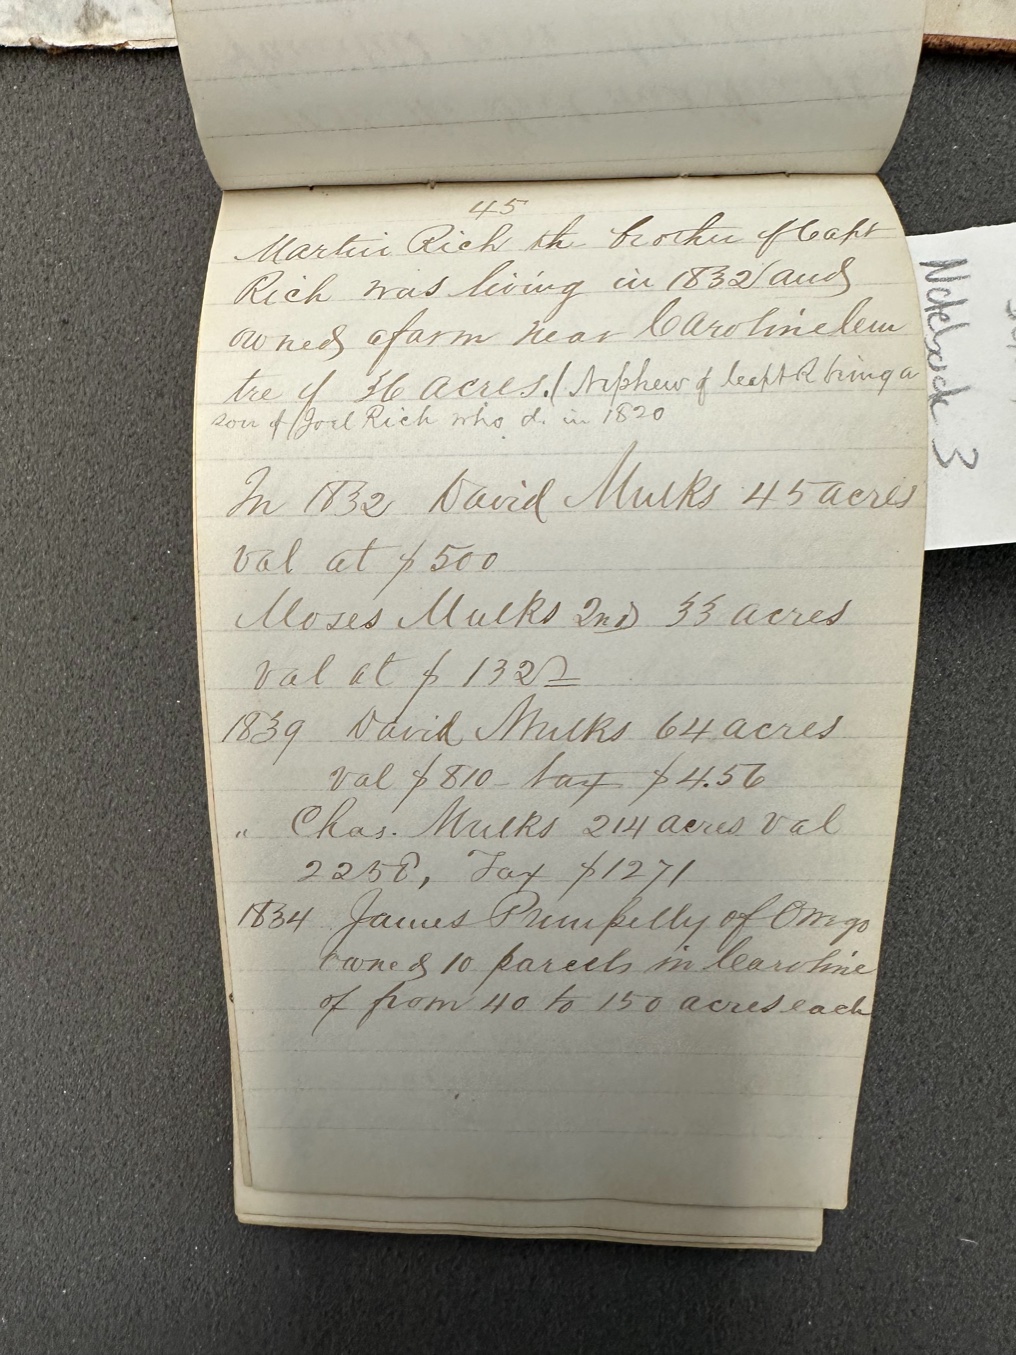 45
Martin Rich the brother of Capt
Rich was living in 1832 (and
owned a farm near Caroline Cen
tre of 36 acres. (Nephew of Capt R being a
son of Joel Rich who d. in 1820
In 1832 David Mulks 45 acres
val at $500
Moses Mulks 2nd 33 acres
val at $ 132
1839 David Mulks 64 acres
val $810 tax $4.56
" Chas. Mulks 214 acres val
2258, Tax $1271
1834 James Pumpelly of Owego
owned 10 parcels in Caroline
of from 40 to 150 acres each
Notebook 3